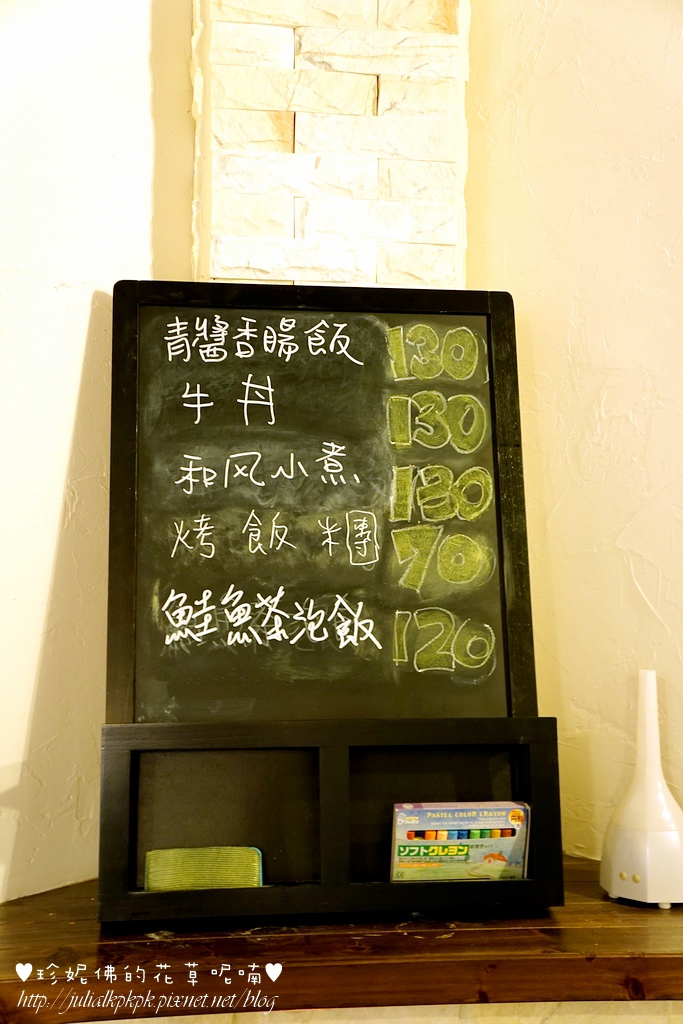 青醬香腸飯 130
牛丼 130
和风小煮 130
烤飯糰 70
鮭魚茶泡飯 120
PASTEL COLOR CRAYON
ソフトクレヨン
♥珍妮佛的花草呢喃♥
http://julialkpkpk.pixnet.net/blog